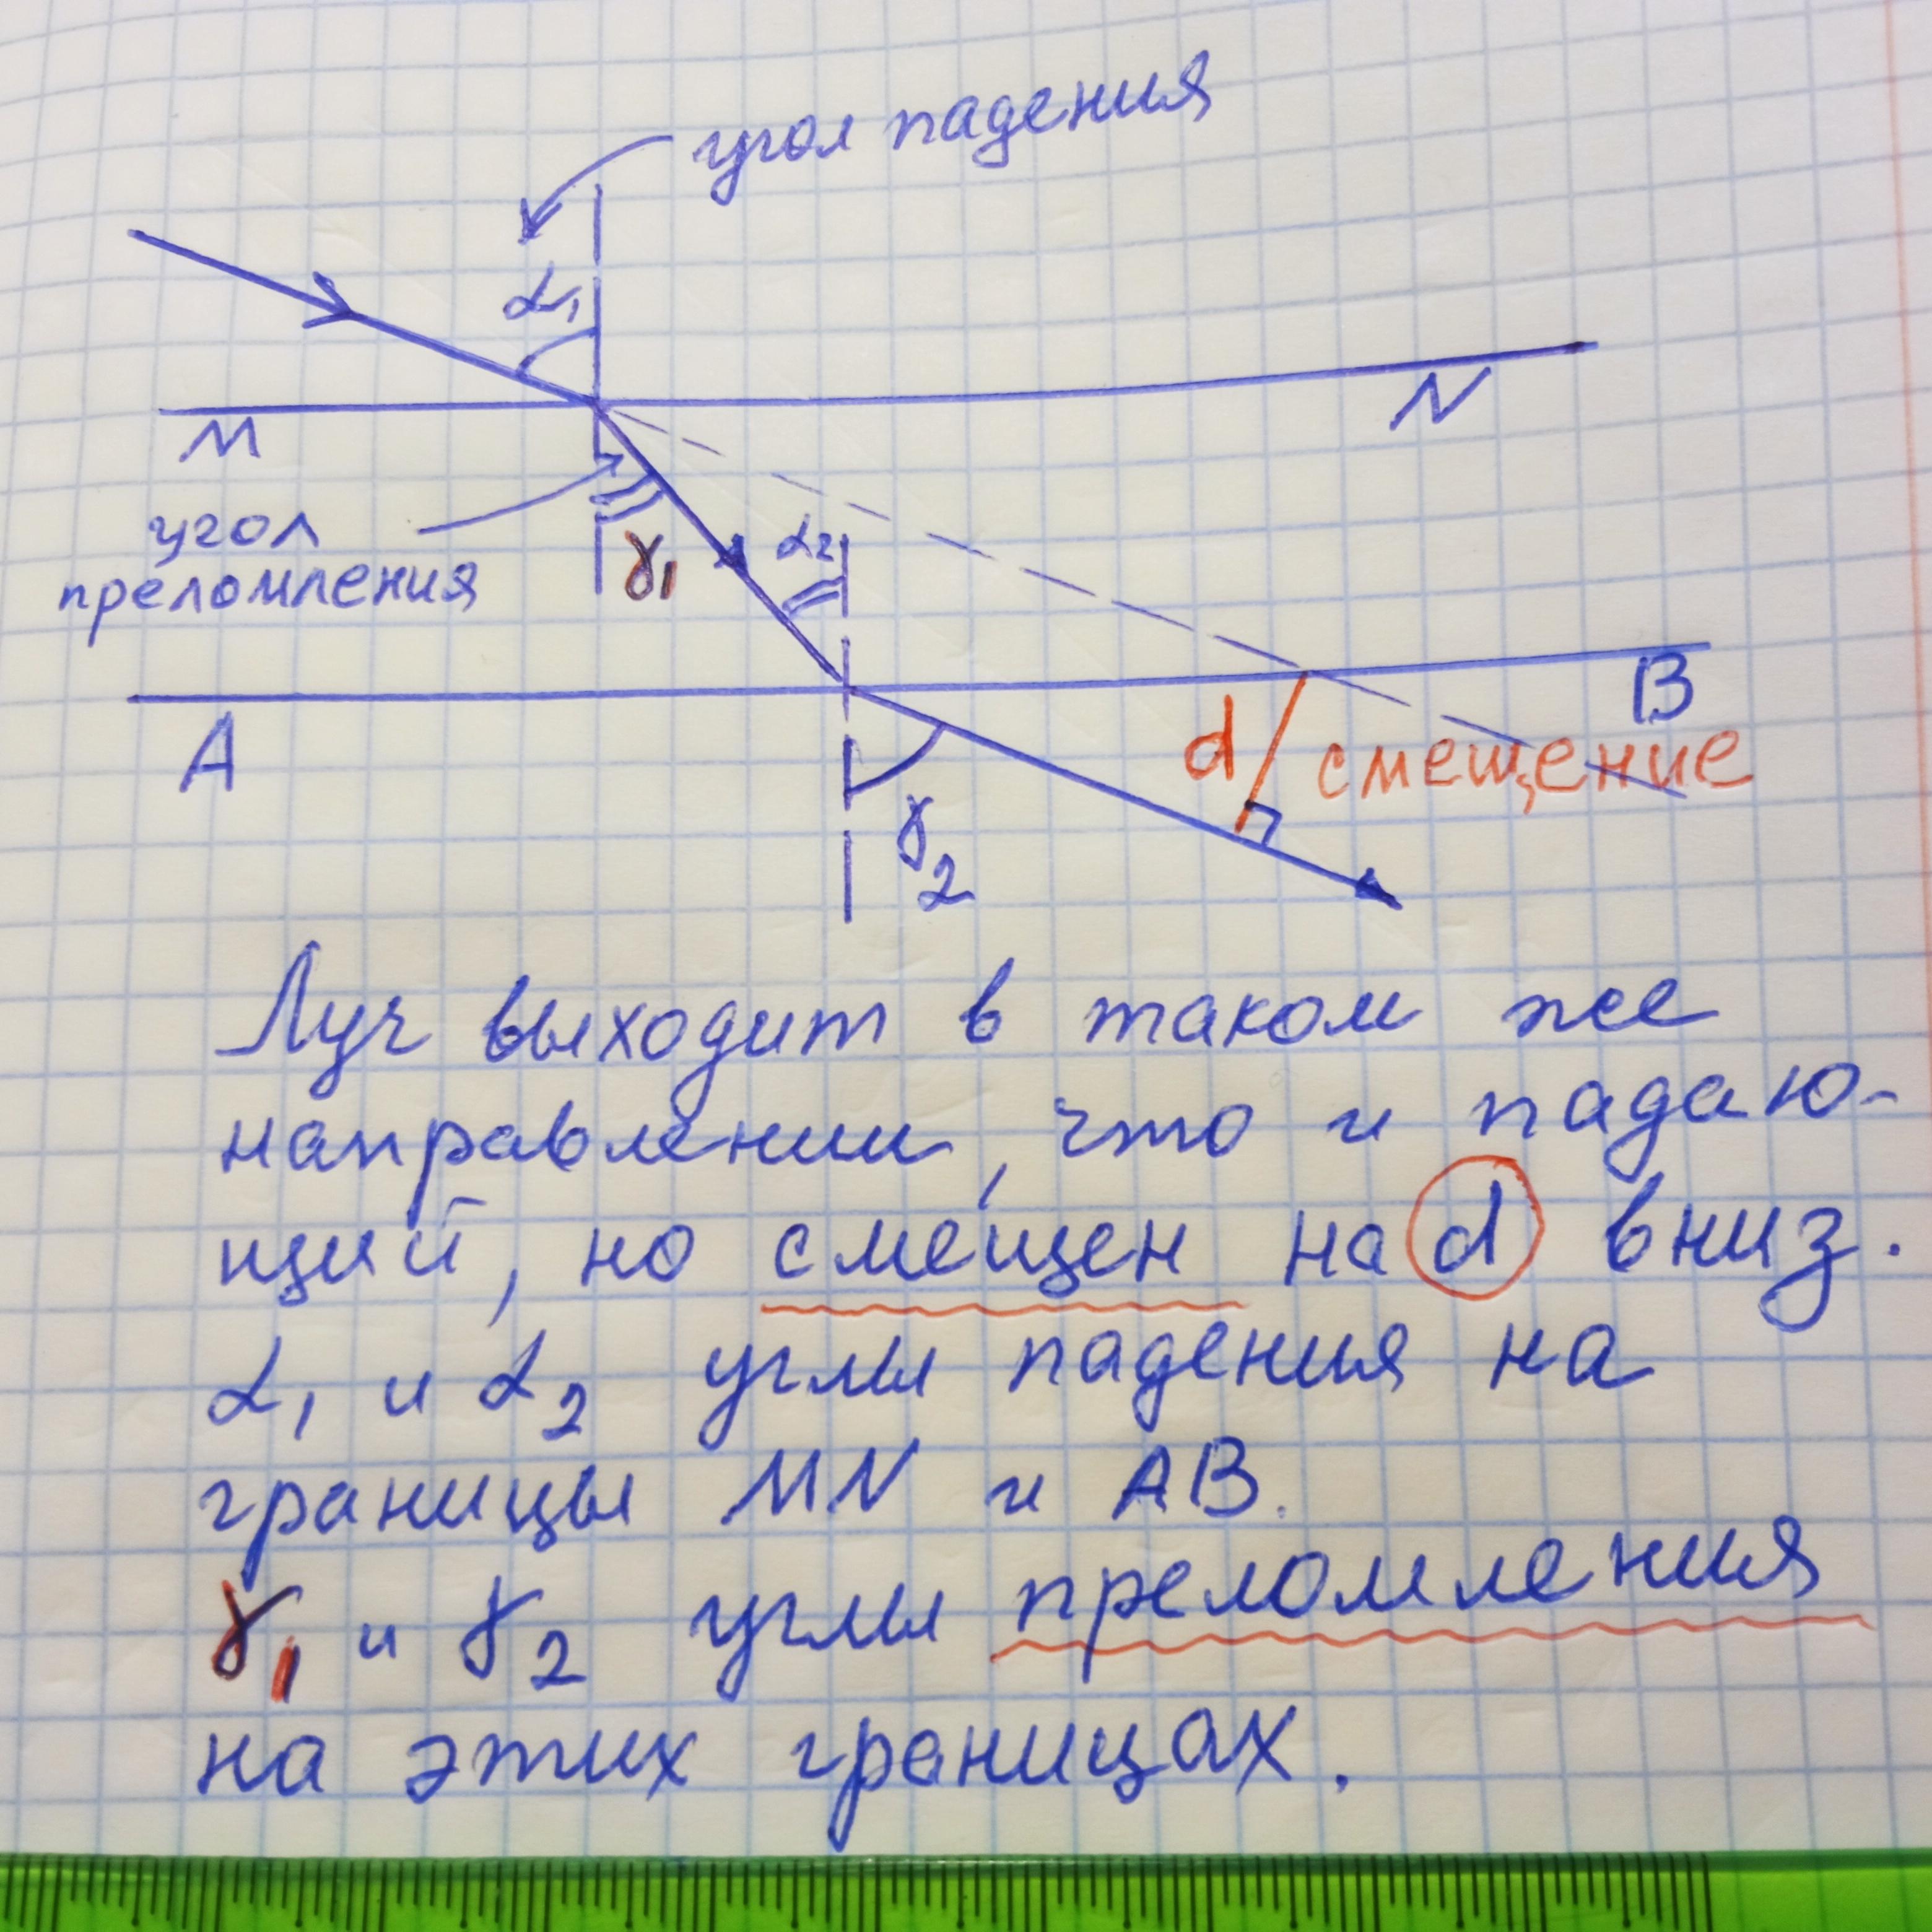 угол падения
α₁
M
N
угол
преломления
γ₁
α₂
A
B
d
смещение
γ₂
Луч выходит в таком же
направлении, что и падаю-
щий, но смещен на d вниз.
α₁ и α₂ углы падения на
границы MN и AB.
γ₁ и γ₂ углы преломления
на этих границах.